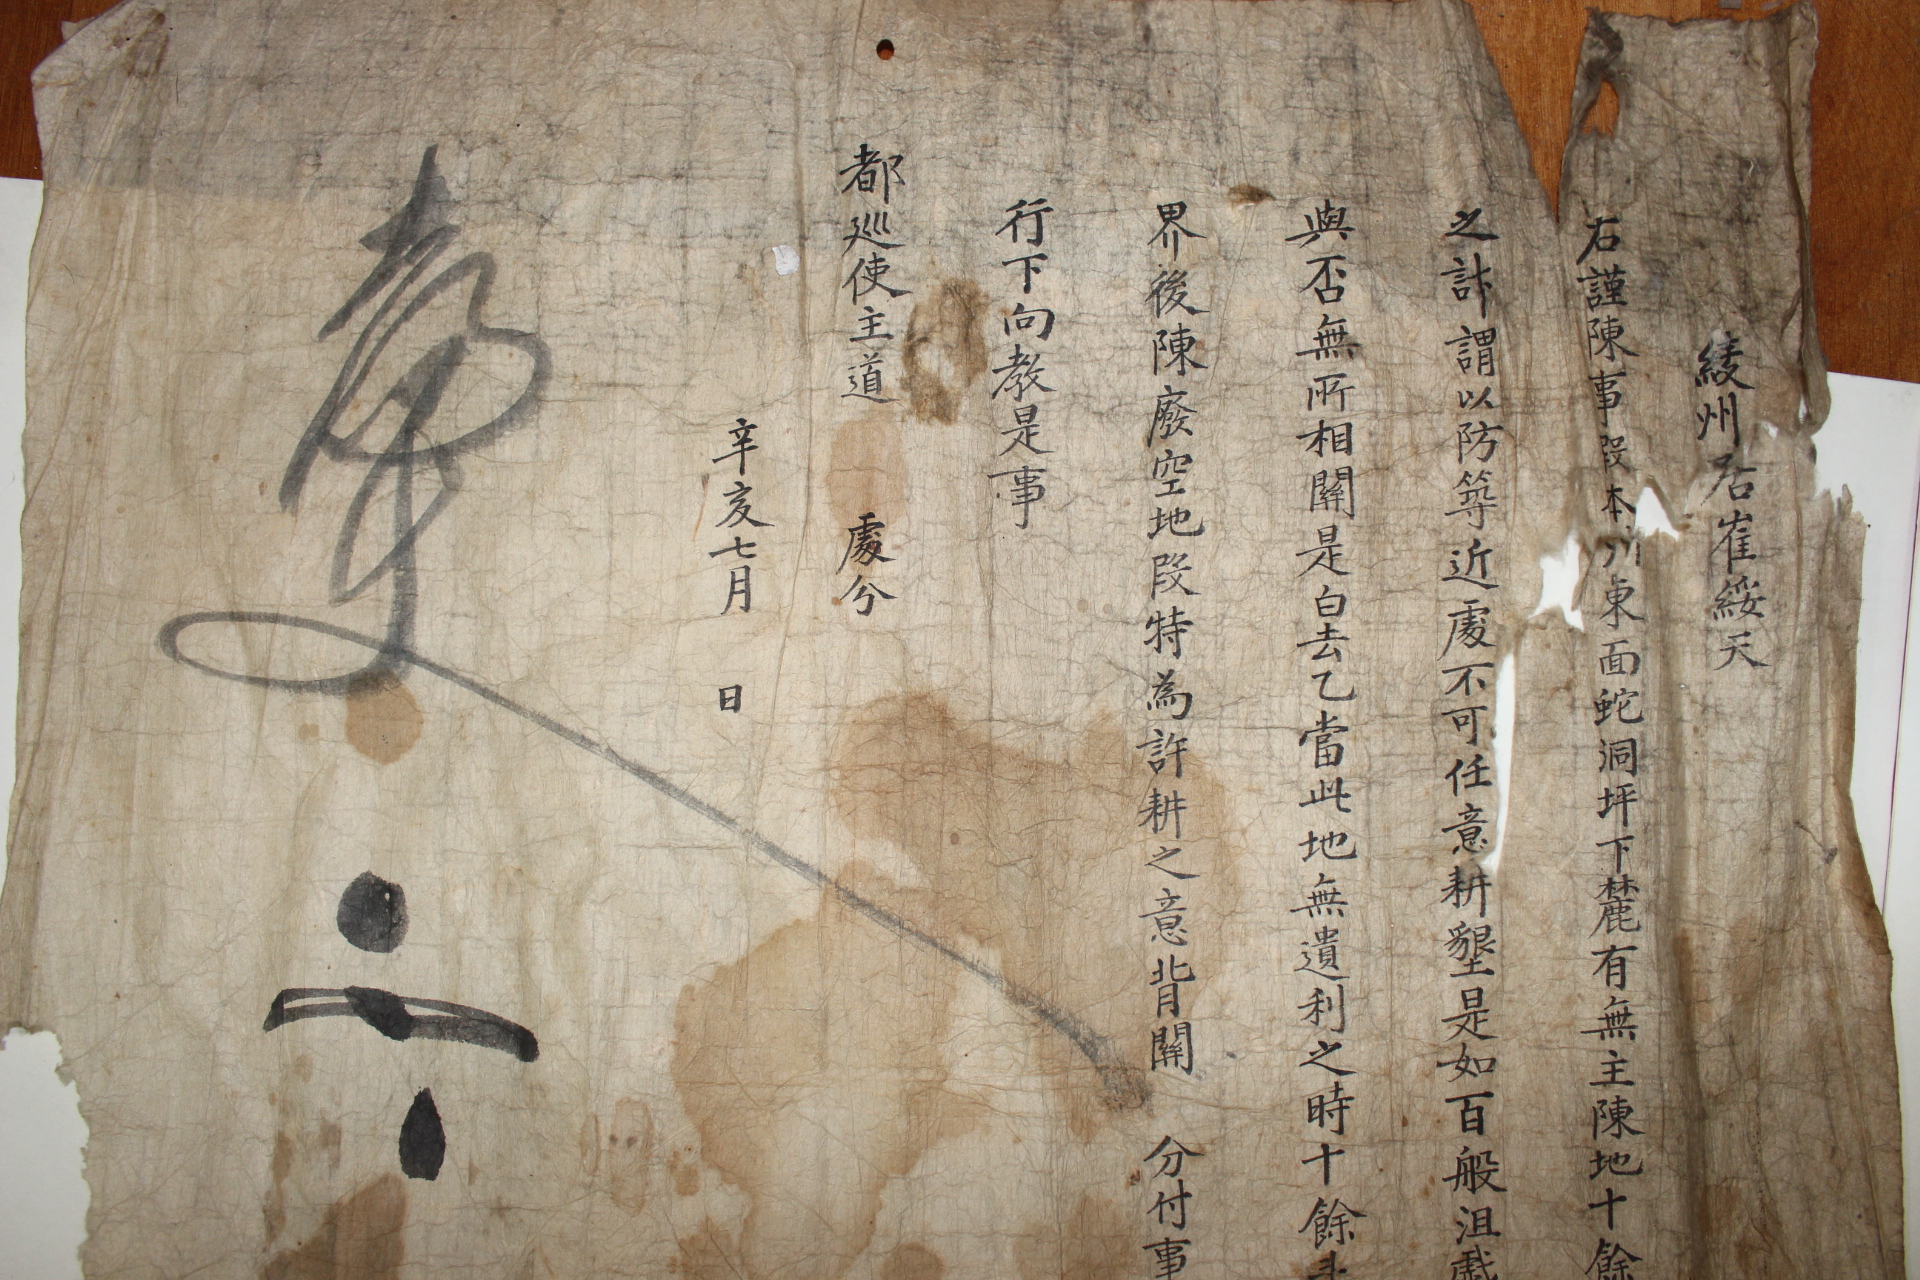 綾州居崔綏天
右謹陳事段本州東面蛇洞坪下麓有無主陳地十餘
之計謂以防築近處不可任意耕墾是如百般沮戱
與否無所相關是白去乙當此地無遺利之時十餘斗
界後陳廢空地段特為許耕之意背關 分付事
行下向教是事
都巡使主道 處分
辛亥七月 日